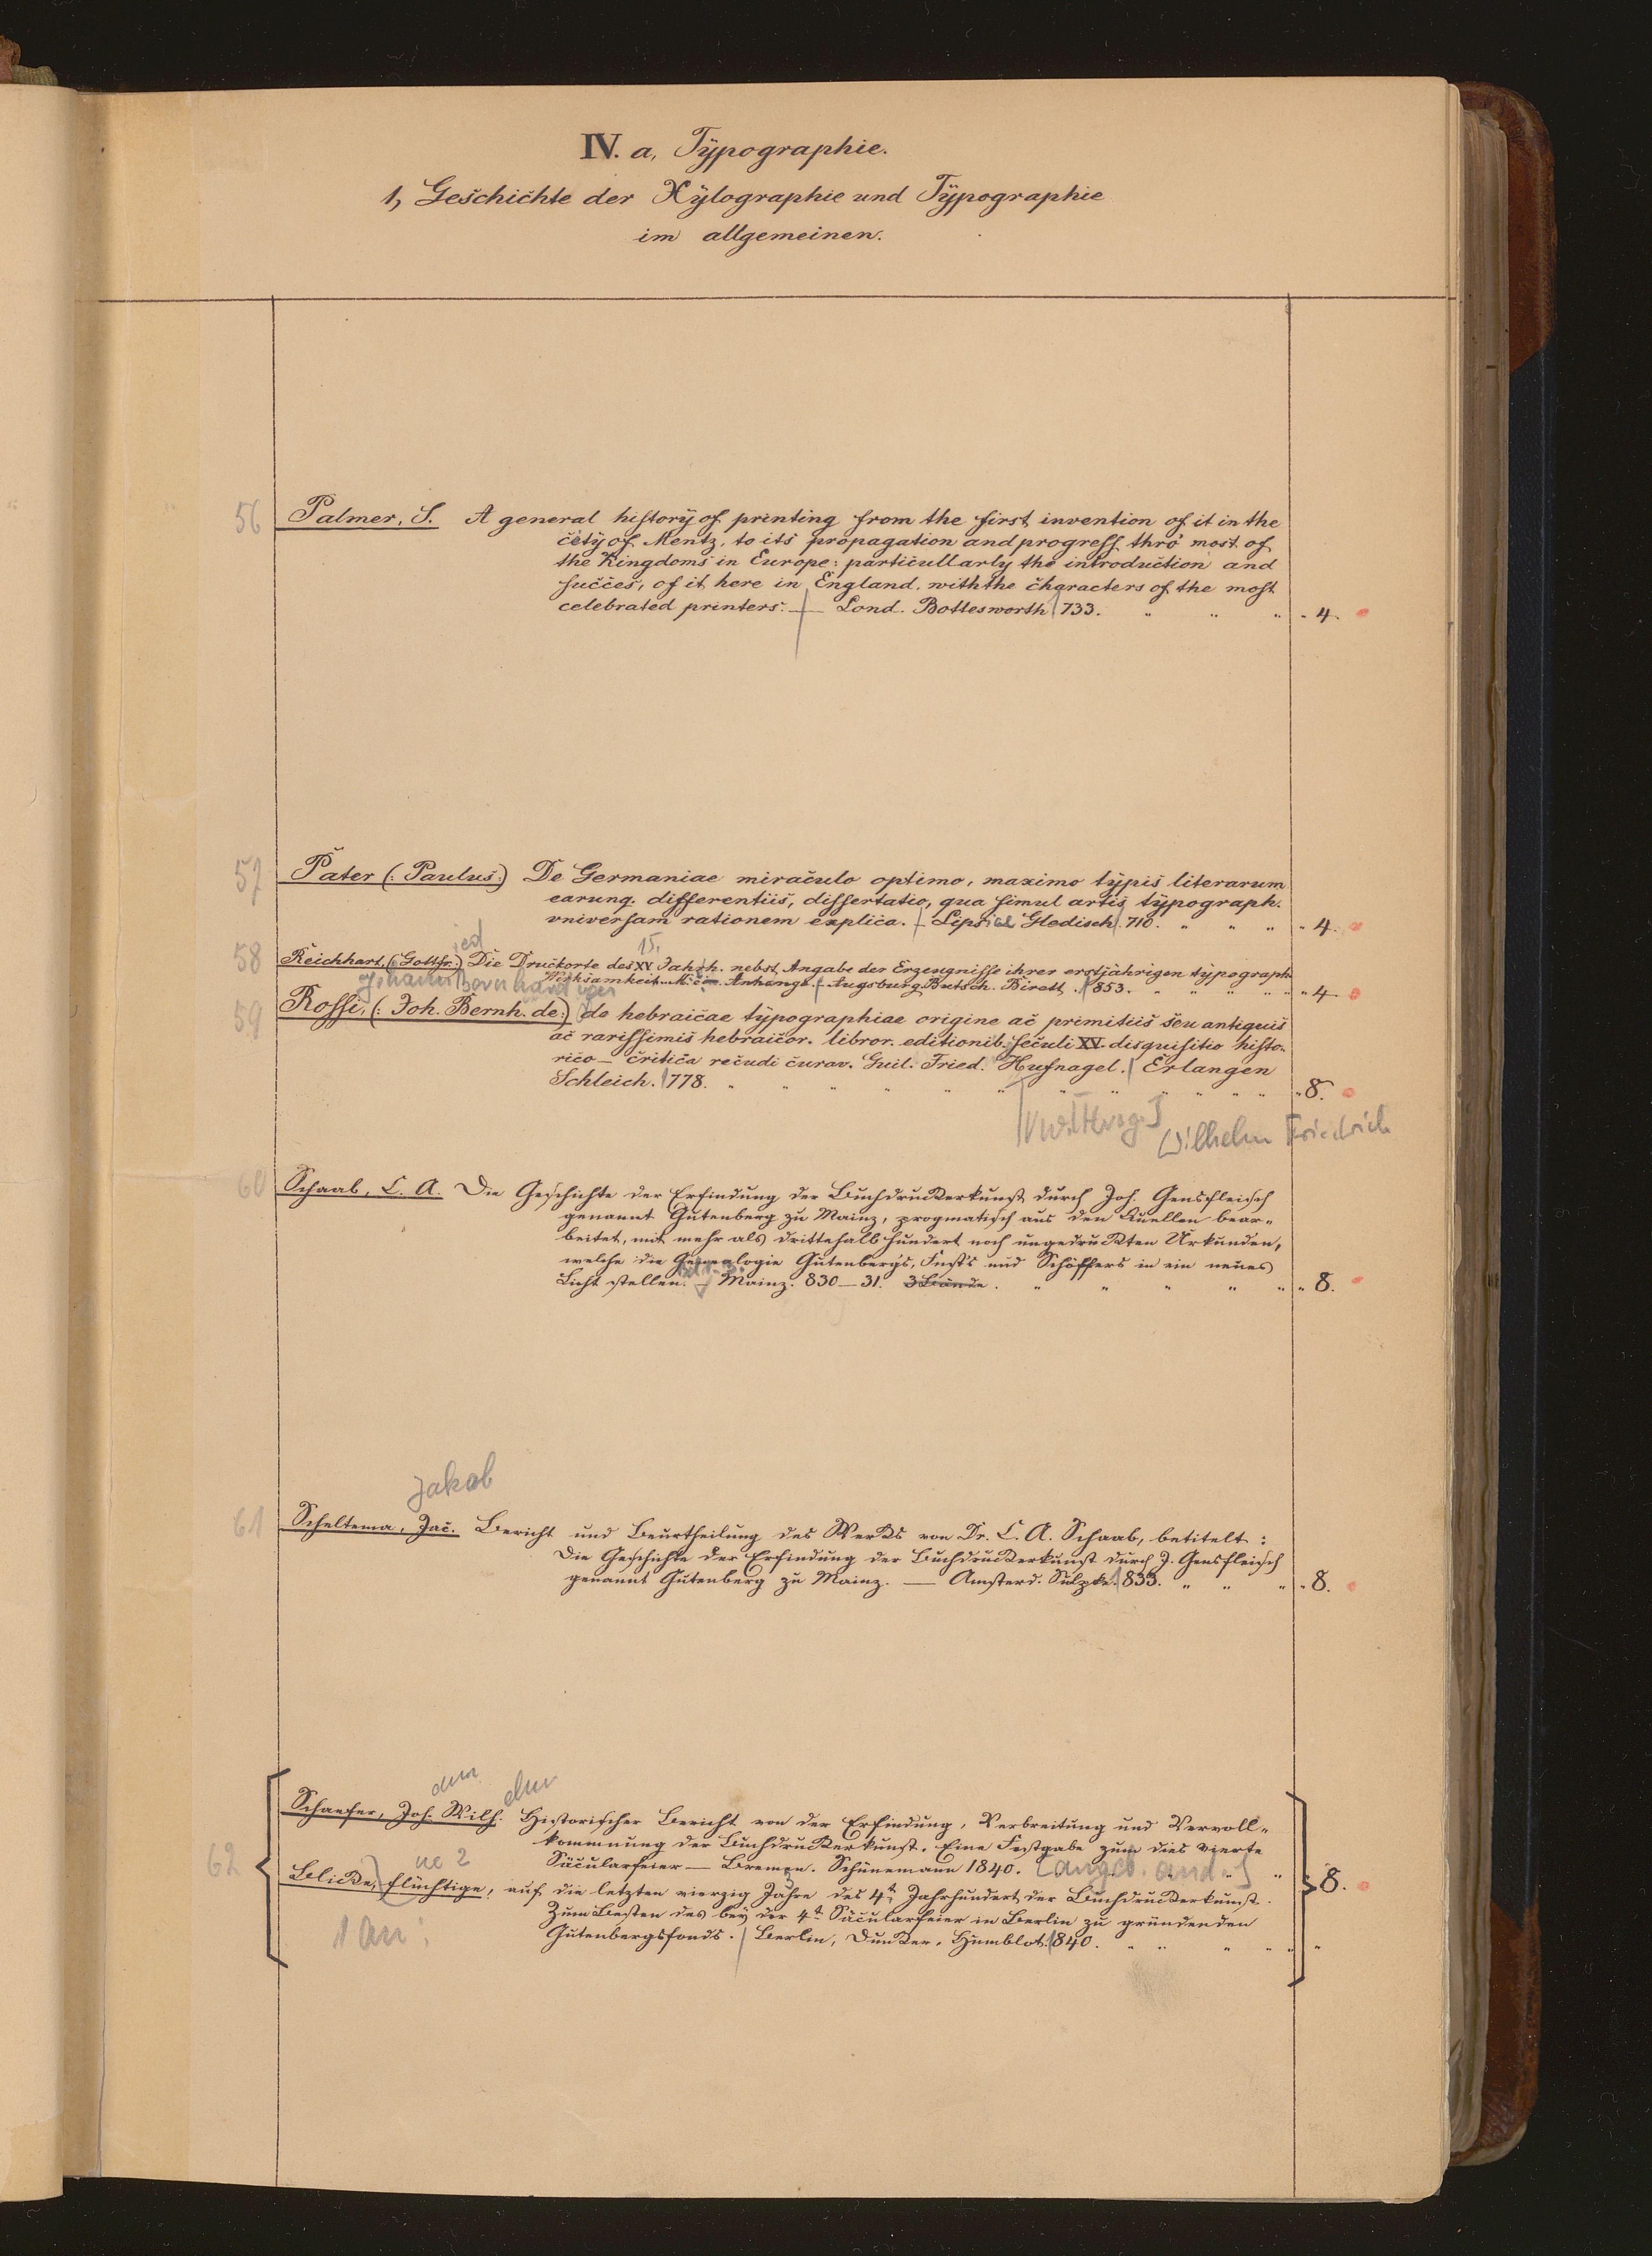 IV. a, Typographie.
1, Geschichte der Xylographie und Typographie
im allgemeinen.
56 Palmer, S. A general history of printing from the first invention of it in the
city of Mentz, to its propagation and progress thro' most of
the Kingdoms in Europe: particullarly the introduction and
succes, of it here in England. with the characters of the most
celebrated printers. — Lond. Bottesworth 733. " " " " 4.
57 Pater (: Paulus:) De Germaniae miraculo optimo, maximo typis literarum
earunq. differentiis, dissertatio, qua simul artis typograph.
vniversam rationem explica. — Lipsiae Gledisch. 710. " " " " 4.
ied 15.
58 Reichhart, (: Gottfr.:) Die Druckorte des XV. Jahrh. nebst Angabe der Erzeugnisse ihrer erstjährigen typograph.
Wirksamkeit. M. e. Anhange. — Augsburg Butsch. Birett. 853. " " " " " " 4
Johann Bernhard
59 Rossi, (: Joh. Bernh. de:) de hebraicae typographiae origine ac primitiis seu antiquis
ac rarissimis hebraicor. libror. editionib. seculi XV. disquisitio histo-
rico - critica recudi curav. Guil. Fried. Hufnagel. Erlangen
Schleich. 778. " " " " " " " " " " 8.
Wilhelm Friedrich
60 Schaab, C. A. Die Geschichte der Erfindung der Buchdruckerkunst durch Joh. Gensfleisch
genannt Gutenberg zu Mainz, pragmatisch aus den Quellen bear-
beitet, mit mehr als drittehalb hundert noch ungedruckten Urkunden,
welche die Genealogie Gutenberg's, Fust's und Schöffers in ein neues
Licht stellen. — Mainz. 830—31. 3 Bände. " " " " " " 8.
Jakob
61 Scheltema, Jac. Bericht und Beurtheilung des Werks von Dr. C. A. Schaab, betitelt:
Die Geschichte der Erfindung der Buchdruckerkunst durch J. Gensfleisch
genannt Gutenberg zu Mainz. — Amsterd. Sülpke. 833. " " " " 8.
Schaefer, Joh. Wilh. Historischer Bericht von der Erfindung, Verbreitung und Vervoll-
kommnung der Buchdruckerkunst. Eine Festgabe zum dies vierte
62 Säcularfeier — Bremen. Schünemann 1840. [angeb. and:] 8.
Blicke, flüchtige, auf die letzten vierzig Jahre des 4t Jahrhundert der Buchdruckerkunst.
Zum Besten des bey der 4t Säcularfeier in Berlin zu gründenden
1 an: Gutenbergsfonds. Berlin, Duncker, Humblot. 840. " " " " " "